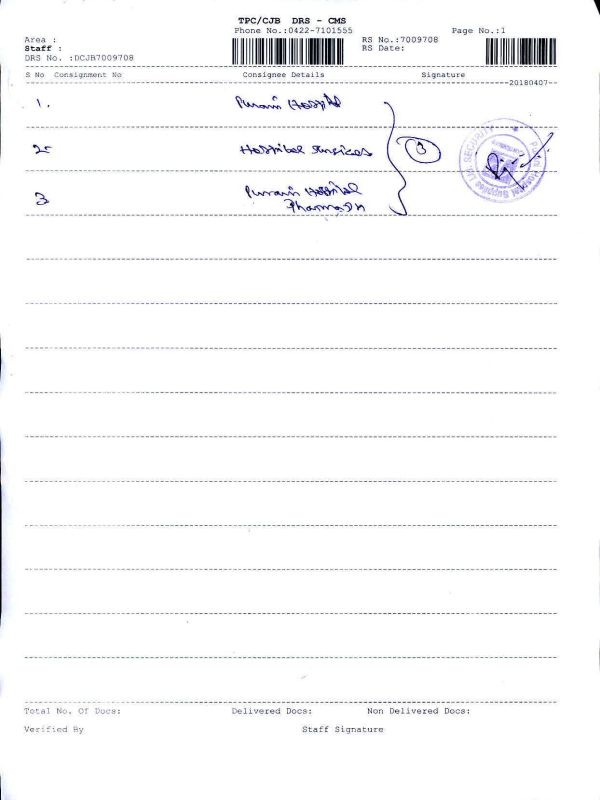 TPC/CJB DRS - CMS
Phone No.:0422-7101555
Page No.:1
Area :
RS No.:7009708
Staff :
RS Date:
DRS No. :DCJB7009708
S No Consignment No Consignee Details Signature
20180407
1. Hospital
2 Hospital Services
3
3 Hospital
Pharmacy
SECURITY
Hospital Supplies
Total No. Of Docs: Delivered Docs: Non Delivered Docs:
Verified By Staff Signature